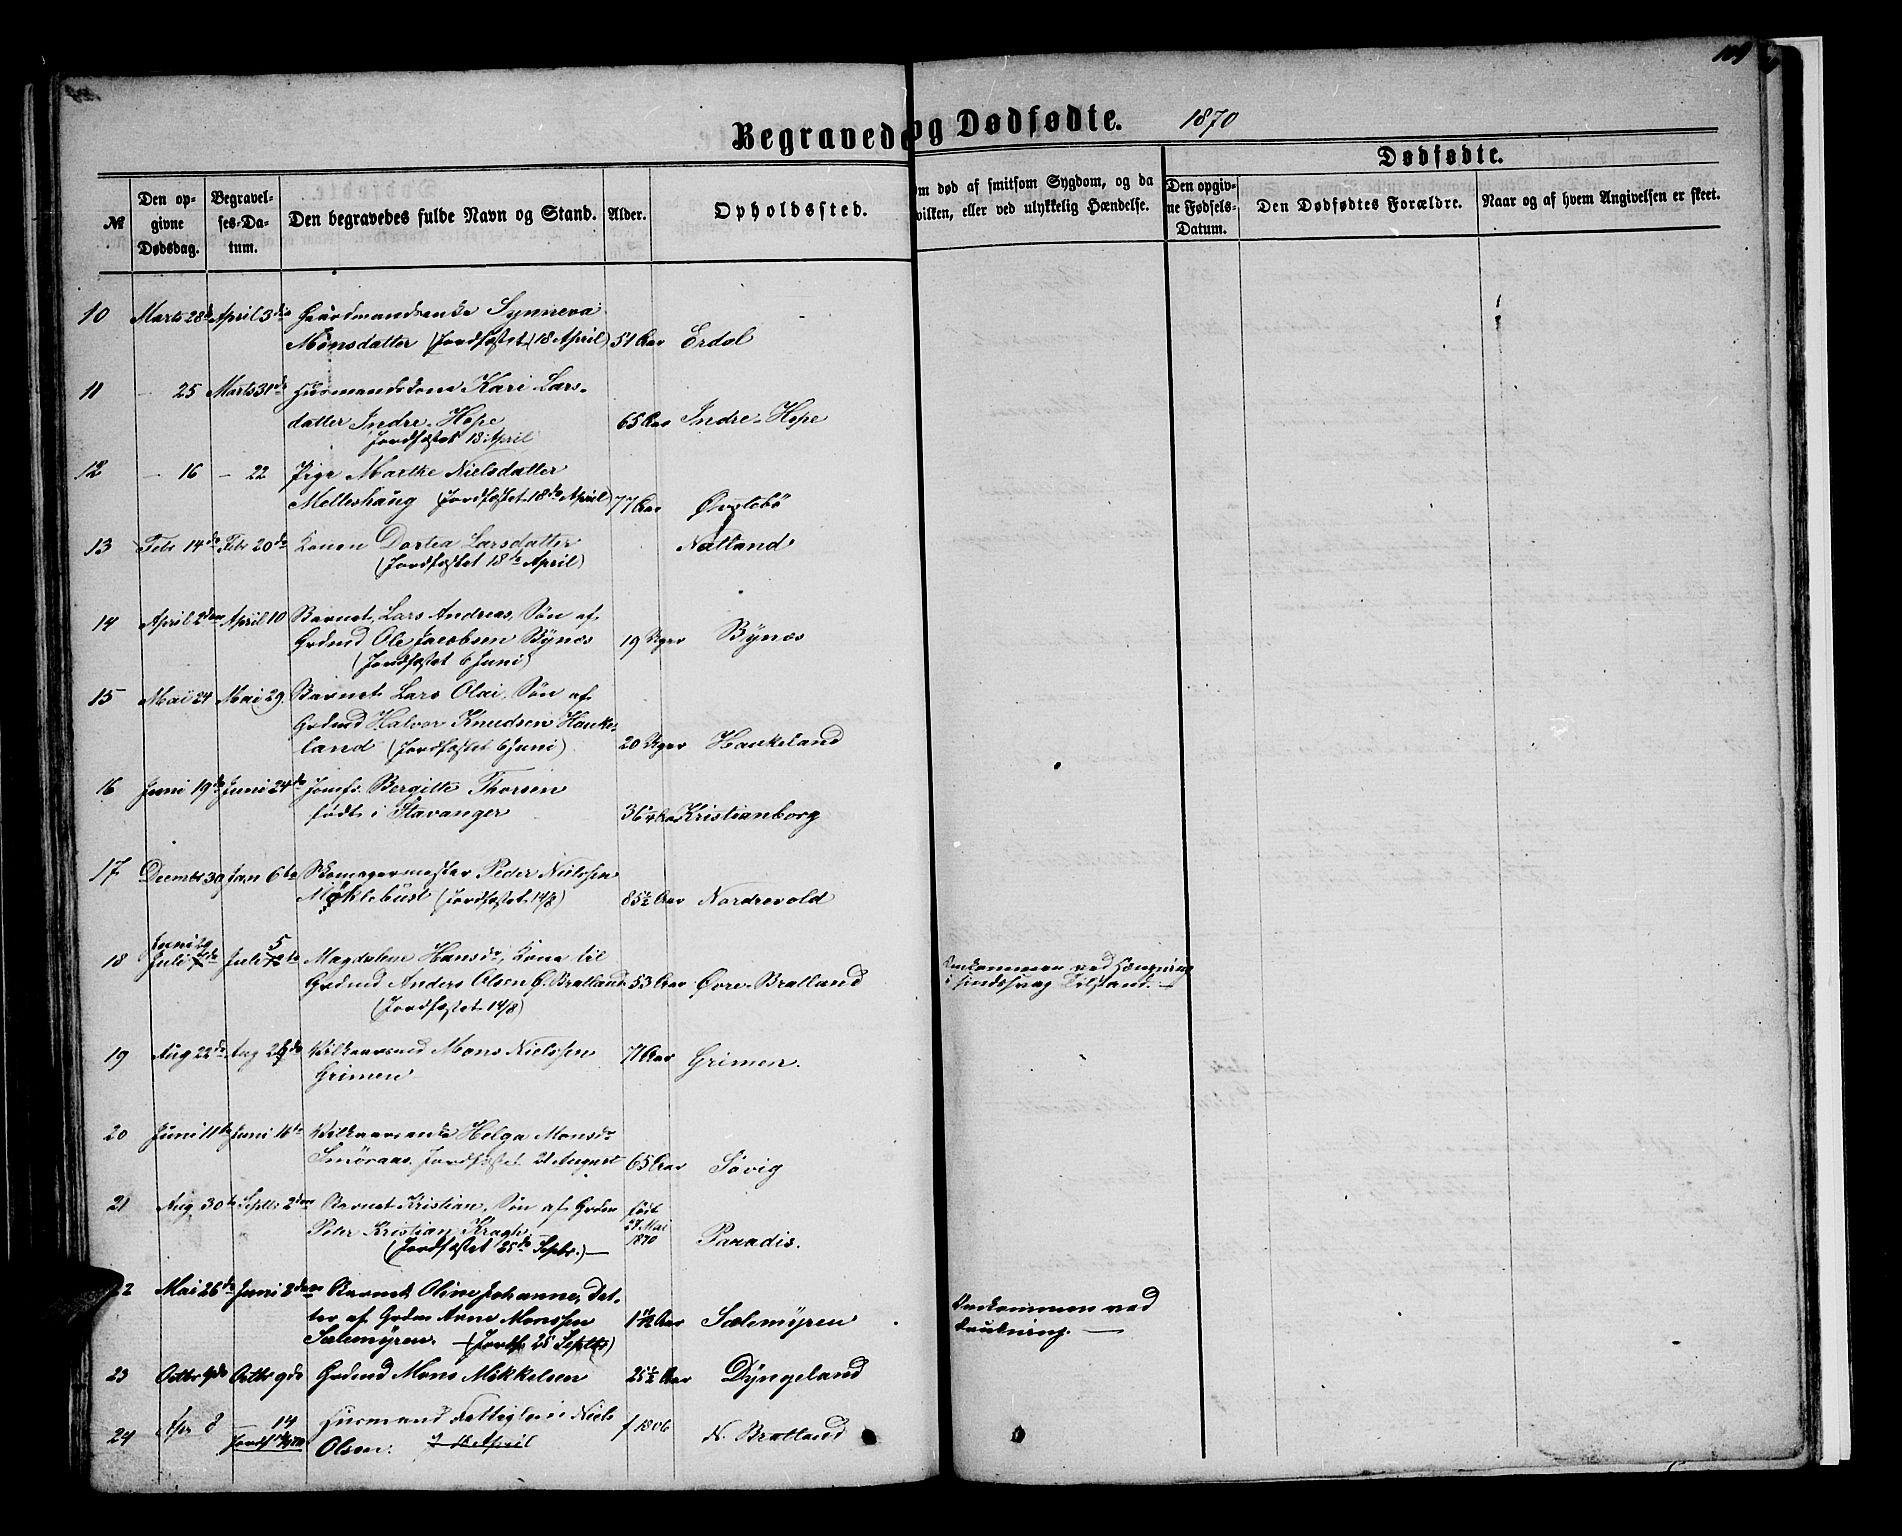 Begravede og Dødfødte. 1870
Dødfødte.
№ Den opgivne Dødsdag. Begravelses-Datum. Den begravedes fulde Navn og Stand. Alder. Opholdssted. Om død af smitsom Sygdom, og da hvilken, eller ved ulykkelig Hændelse. Den opgivne Fødsels-Datum. Den Dødfødtes Forældre. Naar og af hvem Angivelsen er skeet.
10 Marts 28de April 3die Gaardmandsenke Synneva
Monsdatter (Jordfæstet 18 April) 51 Aar Erdal
11 - 25 Marts 31te Husmandskone Kari Lars-
datter Indre-Hope 65 Aar Indre-Hope
Jordfæstet 18 April
12 - 16 - 22 Pige Marthe Nielsdatter
Melleshaug (Jordfæstet 18de April) 77 Aar
13 Febr 14de Febr 20de Konen Dortea Larsdatter Natland
(Jordfæstet 18de April)
14 April 2den April 10 Barnet Lars Andreas, Søn af
Grdmd Ole Jacobsen Bÿnæs 19 Uger Bÿnæs
(Jordfæstet 6 Juni)
15 Mai 24 Mai 29. Barnet Lars Olai, Søn af
Grdmd Halvor Knudsen Hauke-
land (Jordfæstet 6 Juni) 20 Uger Haukeland
16 Juni 19de Juni 24de Jomfr. Bergitte Thorsen
født i Stavanger 36 Kristianborg
17 Decembr 30 Jan 6te Skomagermester Peder Nielssen
Møklebust (Jordfæstet 14/8) 85½ Aar Nordrevold
18 Juli Juli 5 Magdalene Hansdr, Kone til
Grdmd Anders Olsen Ø. Bratland 53 Aar Øvre-Bratland Omkommen ved Hængning
i sindssvag Tilstand.
(Jordfæstet 14/8)
19 Aug 22de Aug Vilkaarsmd Mons Nielssen 71 Aar Grimen.
Grimen
20 Juni 11te Juni 16te Vilkaarsenke Helga Monsdr
Smøraas. Jordfæstet 21 August 65 Aar Søvig
21 Aug 30te Septbr 2den Barnet Kristian, Søn af Grdm født
Peter Kristian Kragh, 27 Mai
1870 Paradis.
(Jordfæstet 25de Septbr.)
22 Mai 26de Juni 2den Barnet Oline Johanne, Dat-
ter af Grdm Arne Monssen 1½ Aar Sælemÿren Omkommen ved
Drukning.
Sælemÿren. (Jordf. 25 Septbr)
23 Octbr 9de Octbr 9de Grdmd Mons Mikkelsen 25½ Aar Dÿngeland
24 Apr 8 - 14 Husmand Fattiglem Niels f 1806 N. Bratland
Olsen. J 18 April